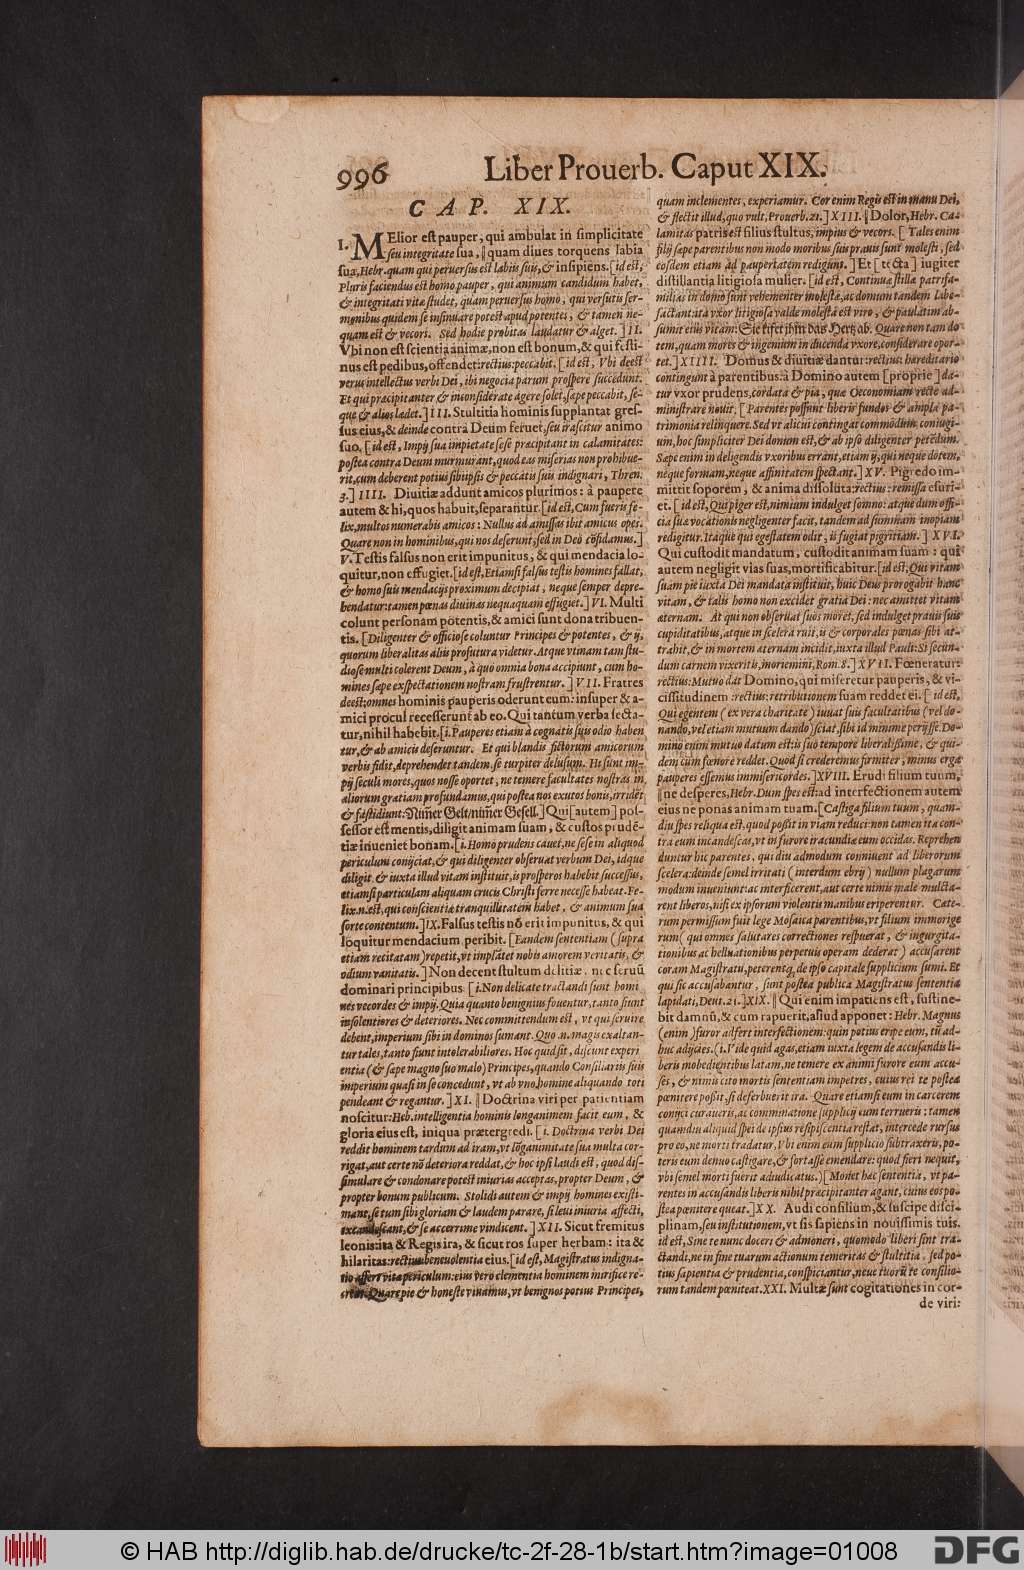 996
Liber Prouerb. Caput XIX.
CAP. XIX.
I. MElior est pauper, qui ambulat in simplicitate
seu integritate sua, ‖quam diues torquens labia
sua, Hebr. quam qui peruersus est labiis suis, & insipiens. [id est,
Pluris faciendus est homo pauper, qui animum candidum habet,
& integritati vitæ studet, quam peruersus homo, qui versutis ser-
monibus quidem se insinuare potest apud potentes, & tamen ne-
quam est & vecors. Sed hodie probitas laudatur & alget.] II.
Vbi non est scientia animæ, non est bonum, & qui festi-
nus est pedibus, offendet: rectius: peccabit. [id est, Vbi deest
verus intellectus verbi Dei, ibi negocia parum prospere succedunt.
Et qui præcipitanter & inconsiderate agere solet, sæpe peccabit, se-
que & alios lædet.] III. Stultitia hominis supplantat gres-
sus eius, & deinde contra Deum feruet, seu irascitur animo
suo. [id est, Impij sua impietate sese præcipitant in calamitates:
postea contra Deum murmurant, quod eas miserias non prohibue-
rit, cum deberent potius sibiipsis & peccatis suis indignari, Thren.
3.] IIII. Diuitiæ addunt amicos plurimos: à paupere
autem & hi, quos habuit, separantur. [id est, Cum fueris fe-
lix, multos numerabis amicos: Nullus ad amissas ibit amicus opes.
Quare non in hominibus, qui nos deserunt, sed in Deo cōfidamus.]
V. Testis falsus non erit impunitus, & qui mendacia lo-
quitur, non effugiet. [id est, Etiamsi falsus testis homines fallat,
& homo suis mendacijs proximum decipiat, neque semper depre-
hendatur: tamen pœnas diuinas nequaquam effugiet.] VI. Multi
colunt personam potentis, & amici sunt dona tribuen-
tis. [Diligenter & officiose coluntur Principes & potentes, & ij,
quorum liberalitas aliis profutura videtur. Atque vtinam tam stu-
diose multi colerent Deum, à quo omnia bona accipiunt, cum ho-
mines sæpe exspectationem nostram frustrentur.] VII. Fratres
deest: omnes hominis pauperis oderunt eum: insuper & a-
mici procul recesserunt ab eo. Qui tantum verba secta-
tur, nihil habebit. [i. Pauperes etiam à cognatis suis odio haben
tur, & ab amicis deseruntur. Et qui blandis fictorum amicorum
verbis fidit, deprehendet tandem se turpiter delusum. Hi sunt im-
pij seculi mores, quos nosse oportet, ne temere facultates nostras in
aliorum gratiam profundamus, qui postea nos exutos bonis, irridēt
& fastidiunt: Nimer Gelt/nimer Gesell.] Qui [autem] pos-
sessor est mentis, diligit animam suam, & custos prudē-
tiæ inueniet bonam. [i. Homo prudens cauet, ne sese in aliquod
periculum conijciat, & qui diligenter obseruat verbum Dei, idque
diligit, & iuxta illud vitam instituit, is prosperos habebit successus,
etiamsi particulam aliquam crucis Christi ferre necesse habeat. Fe-
lix.n.est, qui conscientiæ tranquillitatem habet, & animum sua
sorte contentum.] IX. Falsus testis nō erit impunitus, & qui
loquitur mendacium peribit. [Eandem sententiam (supra
etiam recitatam) repetit, vt implātet nobis amorem veritatis, &
odium vanitatis.] Non decent stultum delitiæ, nec seruū
dominari principibus. [i. Non delicate tractandi sunt homi
nes vecordes & impij. Quia quanto benignius fouentur, tanto fiunt
insolentiores & deteriores. Nec committendum est, vt qui seruire
debent, imperium sibi in dominos sumant. Quo .n. magis exaltan-
tur tales, tanto fiunt intolerabiliores. Hoc quid sit, discunt experi
entia (& sæpe magno suo malo) Principes, quando Consiliariis suis
imperium quasi in se concedunt, vt ab vno homine aliquando toti
pendeant & regantur.] XI. ‖Doctrina viri per patientiam
noscitur: Heb. intelligentia hominis longanimem facit eum, &
gloria eius est, iniqua prætergredi. [i. Doctrina verbi Dei
reddit hominem tardum ad iram, vt lōganimitate sua multa cor-
rigat, aut certe nō deteriora reddat, & hoc ipsi laudi est, quod dis-
simulare & condonare potest iniurias acceptas, propter Deum, &
propter bonum publicum. Stolidi autem & impij homines existi-
mant, se tum sibi gloriam & laudem parare, si leui iniuria affecti,
excandescant, & se acerrime vindicent.] XII. Sicut fremitus
leonis: ita & Regis ira, & sicut ros super herbam: ita &
hilaritas: rectius: beneuolentia eius. [id est, Magistratus indigna-
tio affert vitæ periculum: eius vero clementia hominem mirifice re-
creat. Quare pie & honeste viuamus, vt benignos potius Principes,
quam inclementes, experiamur. Cor enim Regis est in manu Dei,
& flectit illud, quo vult, Prouerb. 21.] XIII. ‖Dolor, Hebr. Ca-
lamitas patris est filius stultus, impius & vecors. [Tales enim
filij sæpe parentibus non modo moribus suis prauis sunt molesti, sed
eosdem etiam ad paupertatem redigunt.] Et [tecta] iugiter
distillantia litigiosa mulier. [id est, Continuæ stillæ patrifa-
milias in domo sunt vehementer molestæ, ac domum tandem labe-
factant: ita vxor litigiosa valde molesta est viro, & paulatim ab-
sumit eius vitam: Sie frist ihm das Hertz ab. Quare non tam do
tem, quam mores & ingenium in ducenda vxore, considerare opor-
tet.] XIIII. Domus & diuitiæ dantur: rectius: hæreditario
contingunt à parentibus: à Domino autem [proprie] da-
tur vxor prudens, cordata & pia, quæ Oeconomiam recte ad-
ministrare nouit. [Parentes possunt liberis fundos & ampla pa-
trimonia relinquere. Sed vt alicui contingat commodum coniugi-
um, hoc simpliciter Dei donum est, & ab ipso diligenter petēdum.
Sæpe enim in deligendis vxoribus errant, etiam ij, qui neque dotem,
neque formam, neque affinitatem spectant.] XV. Pigredo im-
mittit soporem, & anima dissoluta: rectius: remissa esuri-
et. [id est, Qui piger est, nimium indulget somno: atque dum offi-
cia suæ vocationis negligenter facit, tandem ad summam inopiam
redigitur. Itaque qui egestatem odit, is fugiat pigritiam.] XVI.
Qui custodit mandatum, custodit animam suam: qui
autem negligit vias suas, mortificabitur. [id est, Qui vitam
suam pie iuxta Dei mandata instituit, huic Deus prorogabit hanc
vitam, & talis homo non excidet gratia Dei: nec amittet vitam
æternam. At qui non obseruat suos mores, sed indulget prauis suis
cupiditatibus, atque in scelera ruit, is & corporales pœnas sibi at-
trahit, & in mortem æternam incidit, iuxta illud Pauli: Si secun-
dum carnem vixeritis, moriemini, Rom. 8.] XVII. Fœneratur:
rectius: Mutuo dat Domino, qui miseretur pauperis, & vi-
cissitudinem: rectius: retributionem suam reddet ei. [id est,
Qui egentem (ex vera charitate) iuuat suis facultatibus (vel do-
nando, vel etiam mutuum dando) sciat, sibi id minime perijsse. Do-
mino enim mutuo datum est: is suo tempore liberalissime, & qui-
dem cum fœnore reddet. Quod si crederemus firmiter, minus erga
pauperes essemus immisericordes.] XVIII. Erudi filium tuum,
‖ne desperes, Hebr. Dum spes est: ad interfectionem autem
eius ne ponas animam tuam. [Castiga filium tuum, quam-
diu spes reliqua est, quod possit in viam reduci: non tamen ita con-
tra eum incandescas, vt in furore iracundiæ eum occidas. Reprehen
duntur hic parentes, qui diu admodum conniuent ad liberorum
scelera: deinde semel irritati (interdum ebrij) nullum plagarum
modum inueniunt: ac interficerent, aut certe nimis male mulcta-
rent liberos, nisi ex ipsorum violentis manibus eriperentur. Cæte-
rum permissum fuit lege Mosaica parentibus, vt filium immorige
rum (qui omnes salutares correctiones respuerat, & ingurgita-
tionibus ac helluationibus perpetuis operam dederat) accusarent
coram Magistratu, peterentq́; de ipso capitale supplicium sumi. Et
qui sic accusabantur, sunt postea publica Magistratus sententia
lapidati, Deut. 21.] XIX. ‖Qui enim impatiens est, sustine-
bit damnū, & cum rapuerit, aliud apponet: Hebr. Magnus
(enim) furor adfert interfectionem: quin potius eripe eum, tū ad-
huc adijcies. (i. Vide quid agas, etiam iuxta legem de accusandis li-
beris inobedientibus latam, ne temere ex animi furore eum accu-
ses, & nimis cito mortis sententiam impetres, cuius rei te postea
pœnitere possit, si deferbuerit ira. Quare etiamsi eum in carcerem
conijci curaueris, ac comminatione supplicij eum terrueris: tamen
quamdiu aliquid spei de ipsius resipiscentia restat, intercede rursus
pro eo, ne morti tradatur. Vbi enim eum supplicio subtraxeris, po-
teris eum denuo castigare, & fortasse emendare: quod fieri nequit,
vbi semel morti fuerit adiudicatus.) [Monet hæc sententia, vt pa-
rentes in accusandis liberis nihil præcipitanter agant, cuius eos po-
stea pœnitere queat.] XX. Audi consilium, & suscipe disci-
plinam, seu institutionem, vt sis sapiens in nouissimis tuis.
id est, Sine te nunc doceri & admoneri, quomodo liberi sint tra-
ctandi, ne in fine tuarum actionum temeritas & stultitia, sed po-
tius sapientia & prudentia, conspiciantur, neue tuorū te consilio-
rum tandem pœniteat. XXI. Multæ sunt cogitationes in cor-
de viri:
© HAB http://diglib.hab.de/drucke/tc-2f-28-1b/start.htm?image=01008
DFG